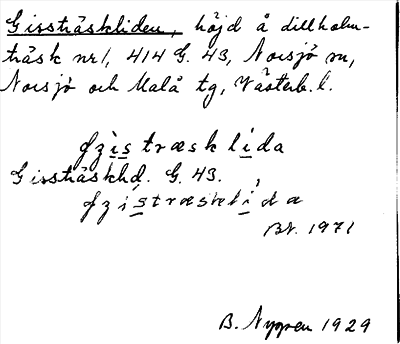 Gissträskliden, höjd å Lillholm-
träsk nr 1, 414 G. 43, Norsjö sn,
Norsjö och Malå tg, Västerb. l.
ʤz̀istræsklída
Gissträskhd. G. 43.
ʤzístræsklída
BN. 1971
B. Nygren 1929